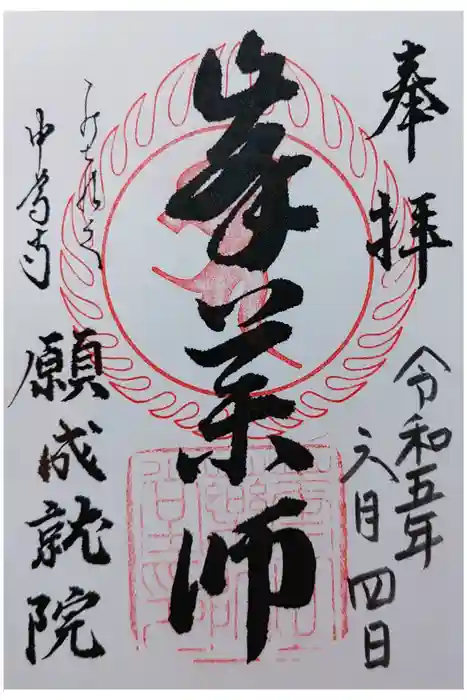 奉拝
令和五年
六月四日
峯薬師
みちのく
中尊寺
願成就院